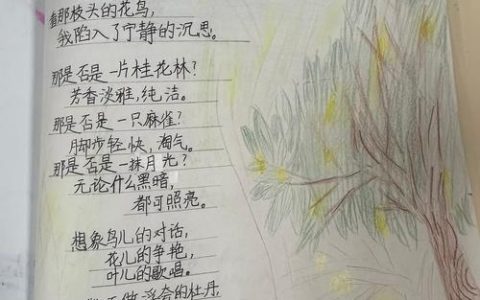 那枝头的花鸟,
我陷入了宁静的沉思。
那是否是一片桂花林?
芳香淡雅,纯洁。
那是否是一只麻雀?
脚步轻快,淘气。
那是否是一抹月光?
无论什么黑暗,
都可照亮。
想象鸟儿的对话,
花儿的争艳,
叶儿的歌唱。
的牡丹,